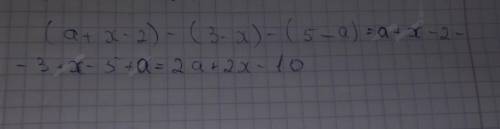 (a + x - 2) - (3 - x) - (5 - a) = a + x - 2 -
- 3 + x - 5 + a = 2a + 2x - 10